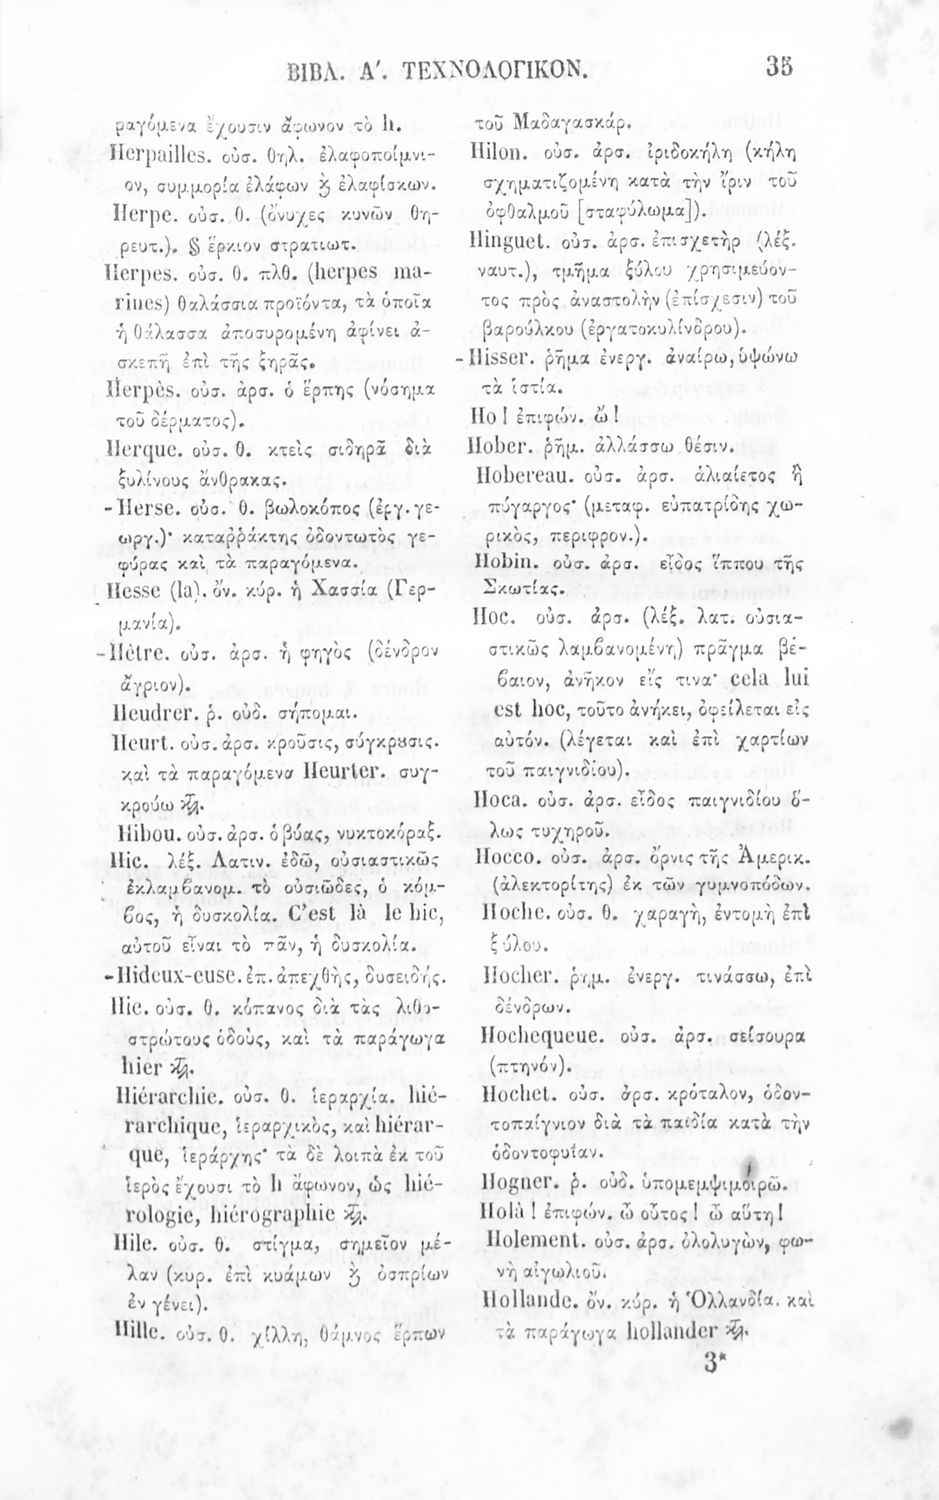 ΒΙΒΛ. Α΄. ΤΕΧΝΟΛΟΓΙΚΟΝ. 35
ραγόμενα ἔχουσιν ἄφωνον τὸ h.
Herpailles. οὐσ. θηλ. ἐλαφοποίμνι-
ον, συμμορία ἐλάφων ϗ ἐλαφίσκων.
Herpe. οὐσ. θ. (ὄνυχες κυνῶν θη-
ρευτ.). § ἕρκιον στρατιωτ.
Herpes. οὐσ. θ. πλθ. (herpes ma-
rines) θαλάσσια προϊόντα, τὰ ὁποῖα
ἡ θάλασσα ἀποσυρομένη ἀφίνει ἀ-
σκεπῆ ἐπὶ τῆς ξηρᾶς.
Herpès. οὐσ. ἀρσ. ὁ ἕρπης (νόσημα
τοῦ δέρματος).
Herque. οὐσ. θ. κτεὶς σιδηρᾶ διὰ
ξυλίνους ἄνθρακας.
-Herse. οὐσ. θ. βωλοκόπος (ἐργ. γε-
ωργ.)· καταῤῥάκτης ὀδοντωτὸς γε-
φύρας καὶ τὰ παραγόμενα.
Hesse (la). ὄν. κύρ. ἡ Χασσία (Γερ-
μανία).
-Hêtre. οὐσ. ἀρσ. ἡ φηγὸς (δένδρον
ἄγριον).
Heudrer. ῥ. οὐδ. σήπομαι.
Heurt. οὐσ. ἀρσ. κροῦσις, σύγκρȣσις.
καὶ τὰ παραγόμενα Heurter. συγ-
κρούω κτλ.
Hibou. οὐσ. ἀρσ. ὁ βύας, νυκτοκόραξ.
Hic. λέξ. Λατιν. ἐδῶ, οὐσιαστικῶς
ἐκλαμϐανομ. τὸ οὐσιῶδες, ὁ κόμ-
ϐος, ἡ δυσκολία. C'est là le hic,
αὐτοῦ εἶναι τὸ πᾶν, ἡ δυσκολία.
-Hideux-euse. ἐπ. ἀπεχθὴς, δυσειδής.
Hie. οὐσ. θ. κόπανος διὰ τὰς λιθο-
στρώτους ὁδοὺς, καὶ τὰ παράγωγα
hier κτλ.
Hiérarchie. οὐσ. θ. ἱεραρχία. hié-
rarchique, ἱεραρχικὸς, καὶ hiérar-
que, ἱεράρχης· τὰ δὲ λοιπὰ ἐκ τοῦ
ἱερὸς ἔχουσι τὸ h ἄφωνον, ὡς hié-
rologie, hiérographie κτλ.
Hile. οὐσ. θ. στίγμα, σημεῖον μέ-
λαν (κυρ. ἐπὶ κυάμων ϗ ὀσπρίων
ἐν γένει).
Hille. οὐσ. θ. χίλλη, θάμνος ἕρπων
τοῦ Μαδαγασκάρ.
Hilon. οὐσ. ἀρσ. ἰριδοκήλη (κήλη
σχηματιζομένη κατὰ τὴν ἴριν τοῦ
ὀφθαλμοῦ [σταφύλωμα]).
Hinguet. οὐσ. ἀρσ. ἐπισχετὴρ (λέξ.
ναυτ.), τμῆμα ξύλου χρησιμεύον-
τος πρὸς ἀναστολὴν (ἐπίσχεσιν) τοῦ
βαρούλκου (ἐργατοκυλίνδρου).
-Hisser. ῥῆμα ἐνεργ. ἀναίρω, ὑψώνω
τὰ ἱστία.
Ho ! ἐπιφών. ὤ !
Hober. ῥῆμ. ἀλλάσσω θέσιν.
Hobereau. οὐσ. ἀρσ. ἁλιαίετος ἢ
πύγαργος· (μεταφ. εὐπατρίδης χω-
ρικὸς, περιφρον.).
Hobin. οὐσ. ἀρσ. εἶδος ἵππου τῆς
Σκωτίας.
Hoc. οὐσ. ἀρσ. (λέξ. λατ. οὐσια-
στικῶς λαμϐανομένη) πρᾶγμα βέ-
ϐαιον, ἀνῆκον εἴς τινα· cela lui
est hoc, τοῦτο ἀνήκει, ὀφείλεται εἰς
αὐτόν. (λέγεται καὶ ἐπὶ χαρτίων
τοῦ παιγνιδίου).
Hoca. οὐσ. ἀρσ. εἶδος παιγνιδίου ὅ-
λως τυχηροῦ.
Hocco. οὐσ. ἀρσ. ὄρνις τῆς Ἀμερικ.
(ἀλεκτορίτης) ἐκ τῶν γυμνοπόδων.
Hoche. οὐσ. θ. χαραγὴ, ἐντομὴ ἐπὶ
ξύλου.
Hocher. ῥημ. ἐνεργ. τινάσσω, ἐπὶ
δένδρων.
Hochequeue. οὐσ. ἀρσ. σείσουρα
(πτηνόν).
Hochet. οὐσ. ἀρσ. κρόταλον, ὀδον-
τοπαίγνιον διὰ τὰ παιδία κατὰ τὴν
ὀδοντοφυΐαν.
Hogner. ῥ. οὐδ. ὑπομεμψιμοιρῶ.
Holà ! ἐπιφών. ὦ οὗτος ! ὦ αὕτη !
Holement. οὐσ. ἀρσ. ὀλολυγὼν, φω-
νὴ αἰγωλιοῦ.
Hollande. ὄν. κύρ. ἡ Ὁλλανδία. καὶ
τὰ παράγωγα hollander κτλ.
3*